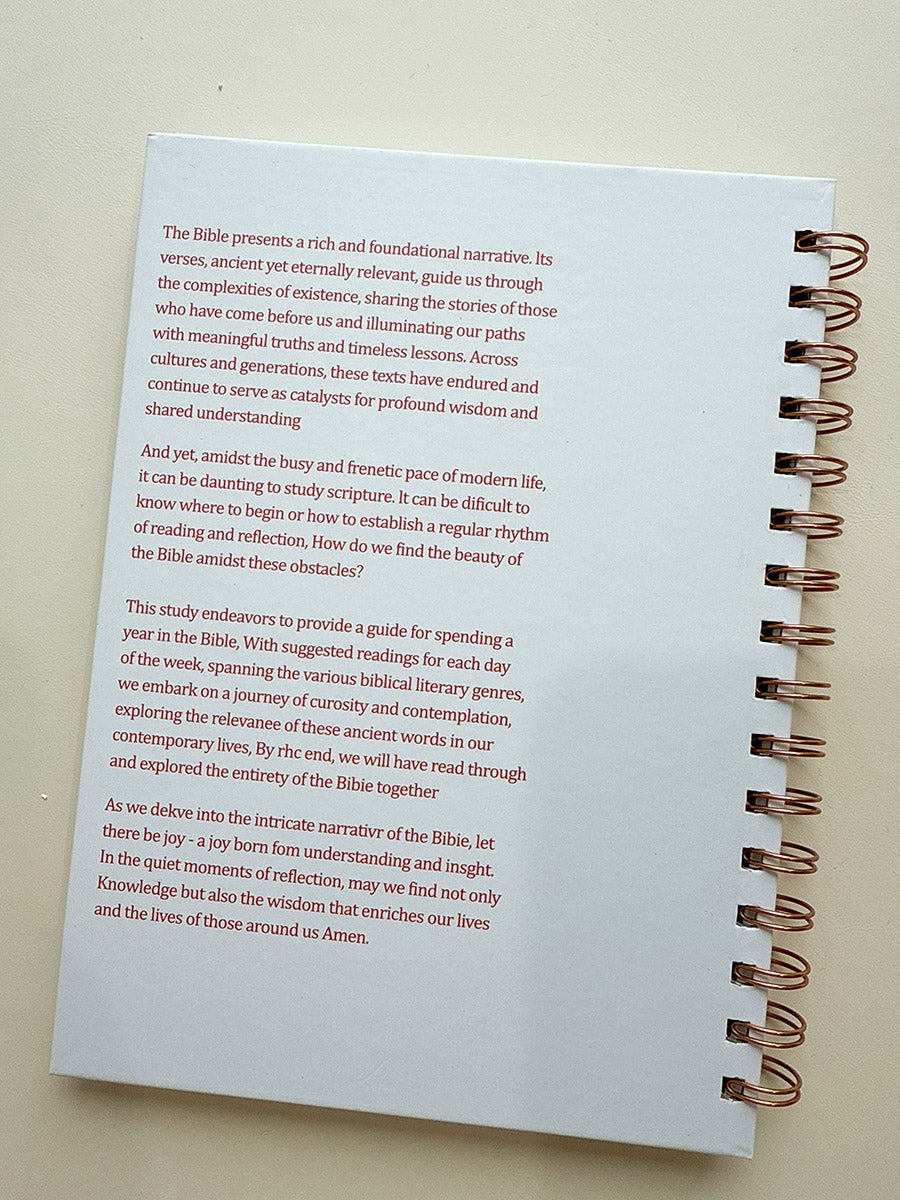 The Bible presents a rich and foundational narrative. Its
verses, ancient yet eternally relevant, guide us through
the complexities of existence, sharing the stories of those
who have come before us and illuminating our paths
with meaningful truths and timeless lessons. Across
cultures and generations, these texts have endured and
continue to serve as catalysts for profound wisdom and
shared understanding
And yet, amidst the busy and frenetic pace of modern life,
it can be daunting to study scripture. It can be dificult to
know where to begin or how to establish a regular rhythm
of reading and reflection, How do we find the beauty of
the Bible amidst these obstacles?
This study endeavors to provide a guide for spending a
year in the Bible, With suggested readings for each day
of the week, spanning the various biblical literary genres,
we embark on a journey of curosity and contemplation,
exploring the relevanee of these ancient words in our
contemporary lives, By rhc end, we will have read through
and explored the entirety of the Bibie together
As we dekve into the intricate narrativr of the Bibie, let
there be joy - a joy born fom understanding and insght.
In the quiet moments of reflection, may we find not only
Knowledge but also the wisdom that enriches our lives
and the lives of those around us Amen.